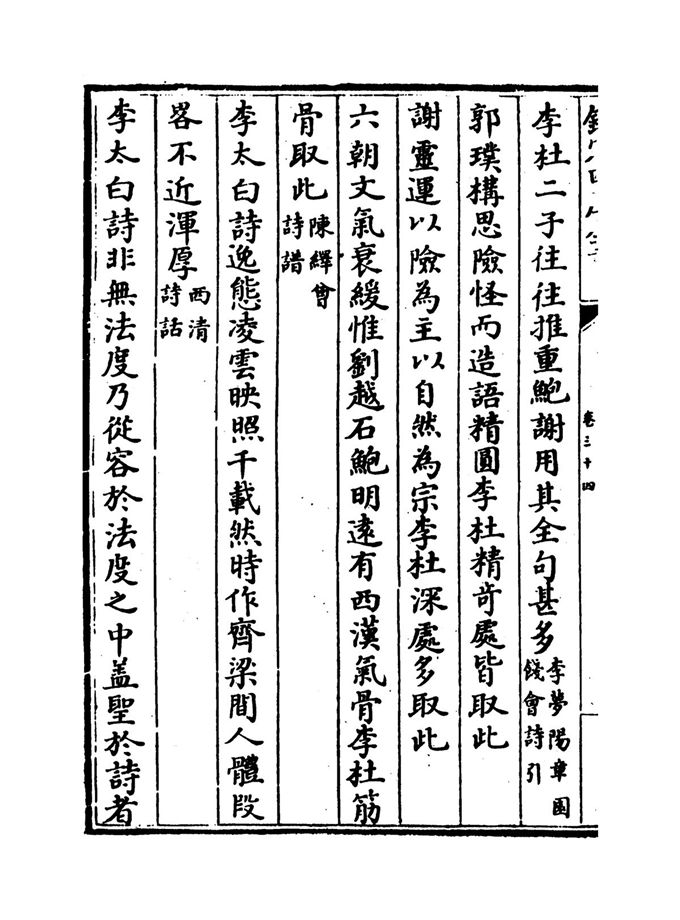 卷三十四
李杜二子往往推重鮑謝用其全句甚多李夢陽章園餞會詩引
郭璞構思險怪而造語精圓李杜精竒處皆取此
謝靈運以險為主以自然為宗李杜深處多取此
六朝文氣衰緩惟劉越石鮑明逺有西漢氣骨李杜筋
骨取此陳繹曾詩譜
李太白詩逸態凌雲映照千載然時作齊梁間人體段
畧不近渾厚西清詩話
李太白詩非無法度乃從容於法度之中盖聖於詩者